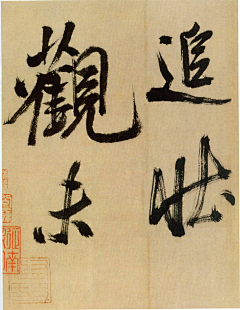 追壯
觀未